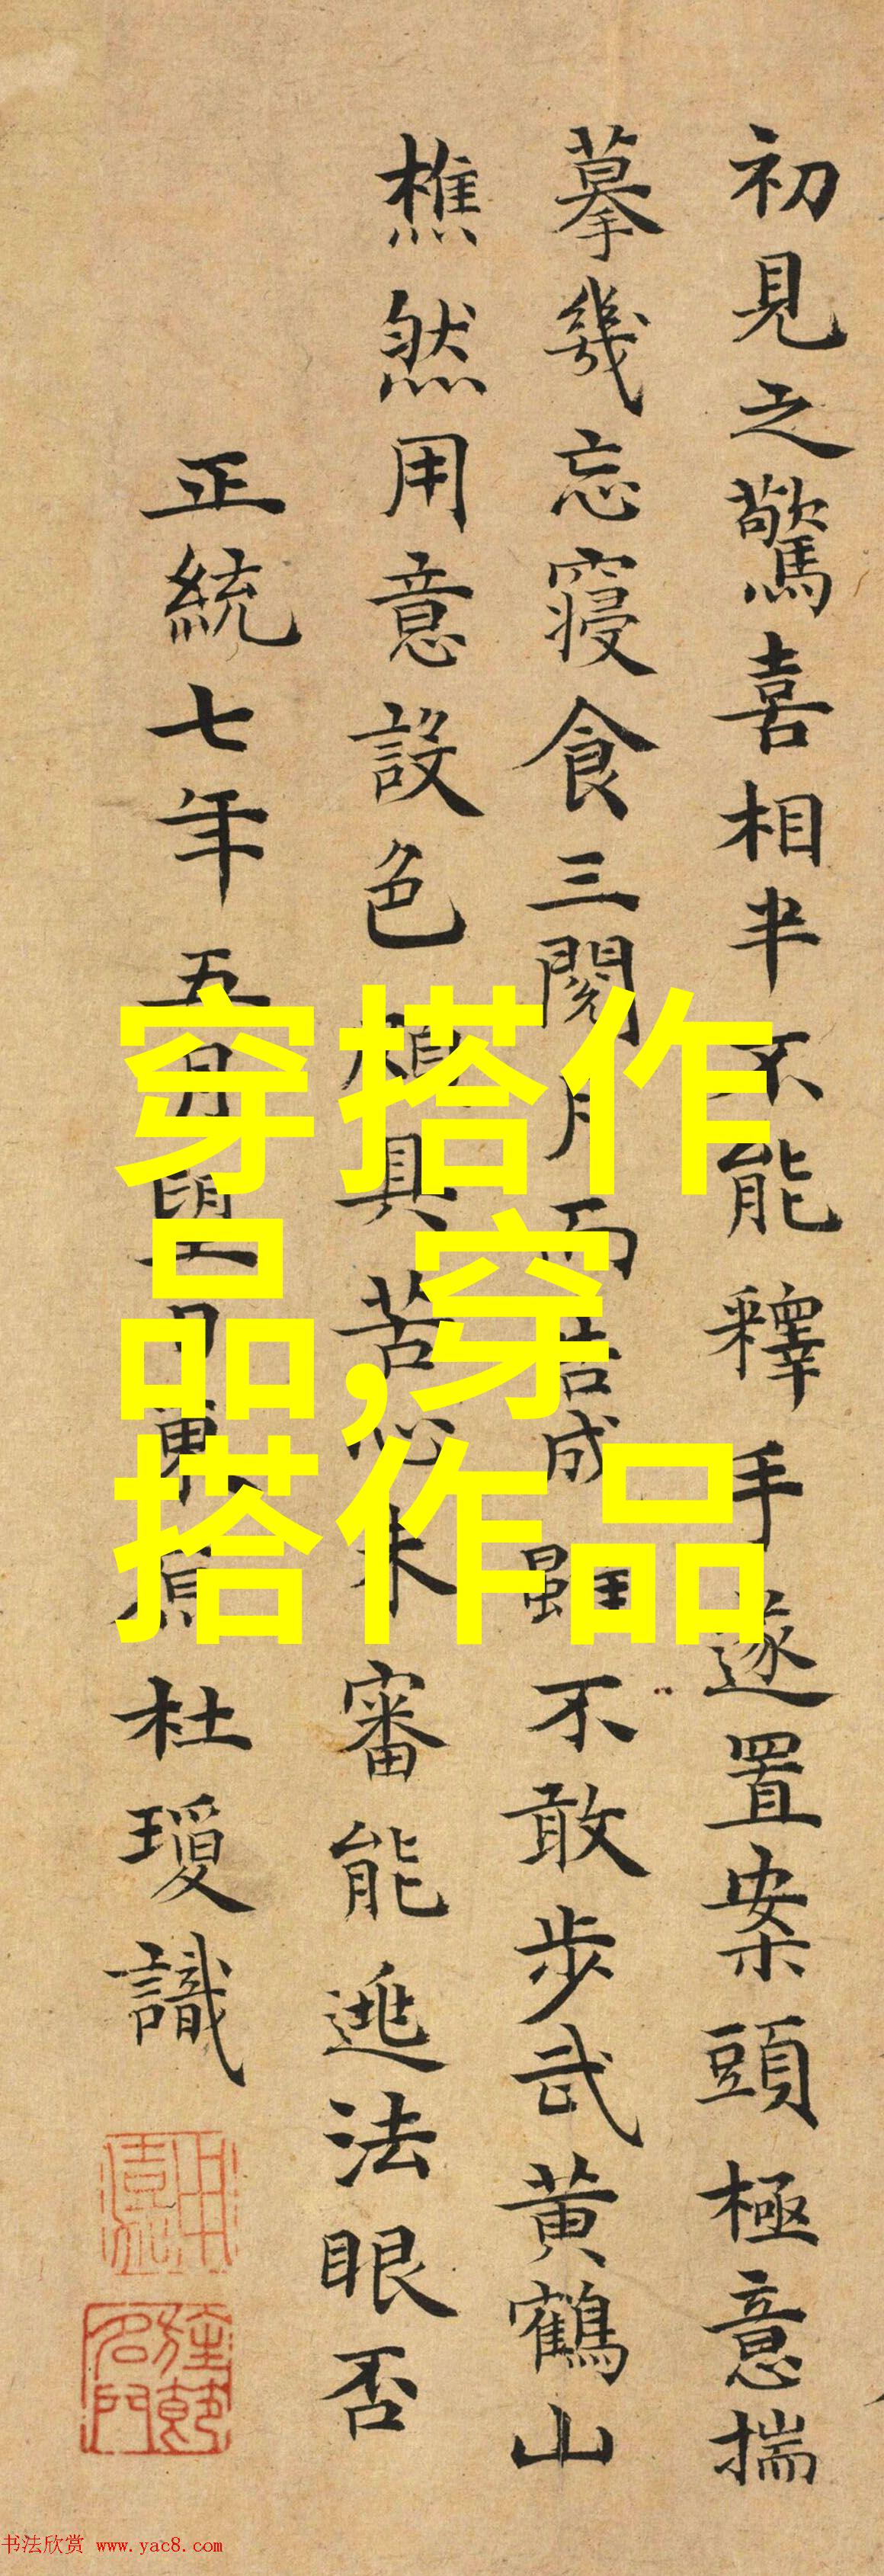 初見之驚喜相半不能釋手遂置案頭極意揣
摹幾忘寢食三閱月而告成雖不敢步武黃鶴山
樵然用意設色頗具苦心未審能逃法眼否
正統七年五月望日東原杜瓊識
穿搭作
品,穿
搭作品
书法欣赏 www.yac8.com